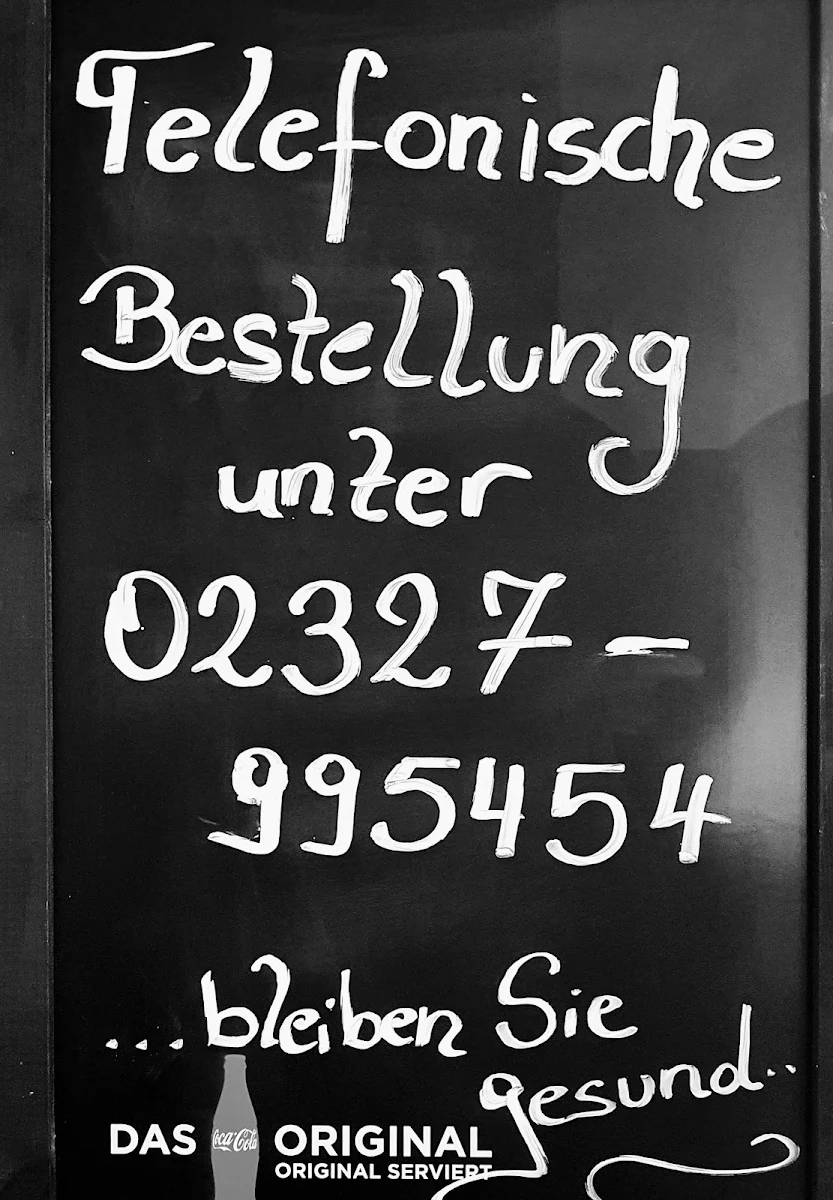 Telefonische
Bestellung
unter
02327-
995454
...bleiben Sie
gesund..
DAS Coca-Cola ORIGINAL
ORIGINAL SERVIERT